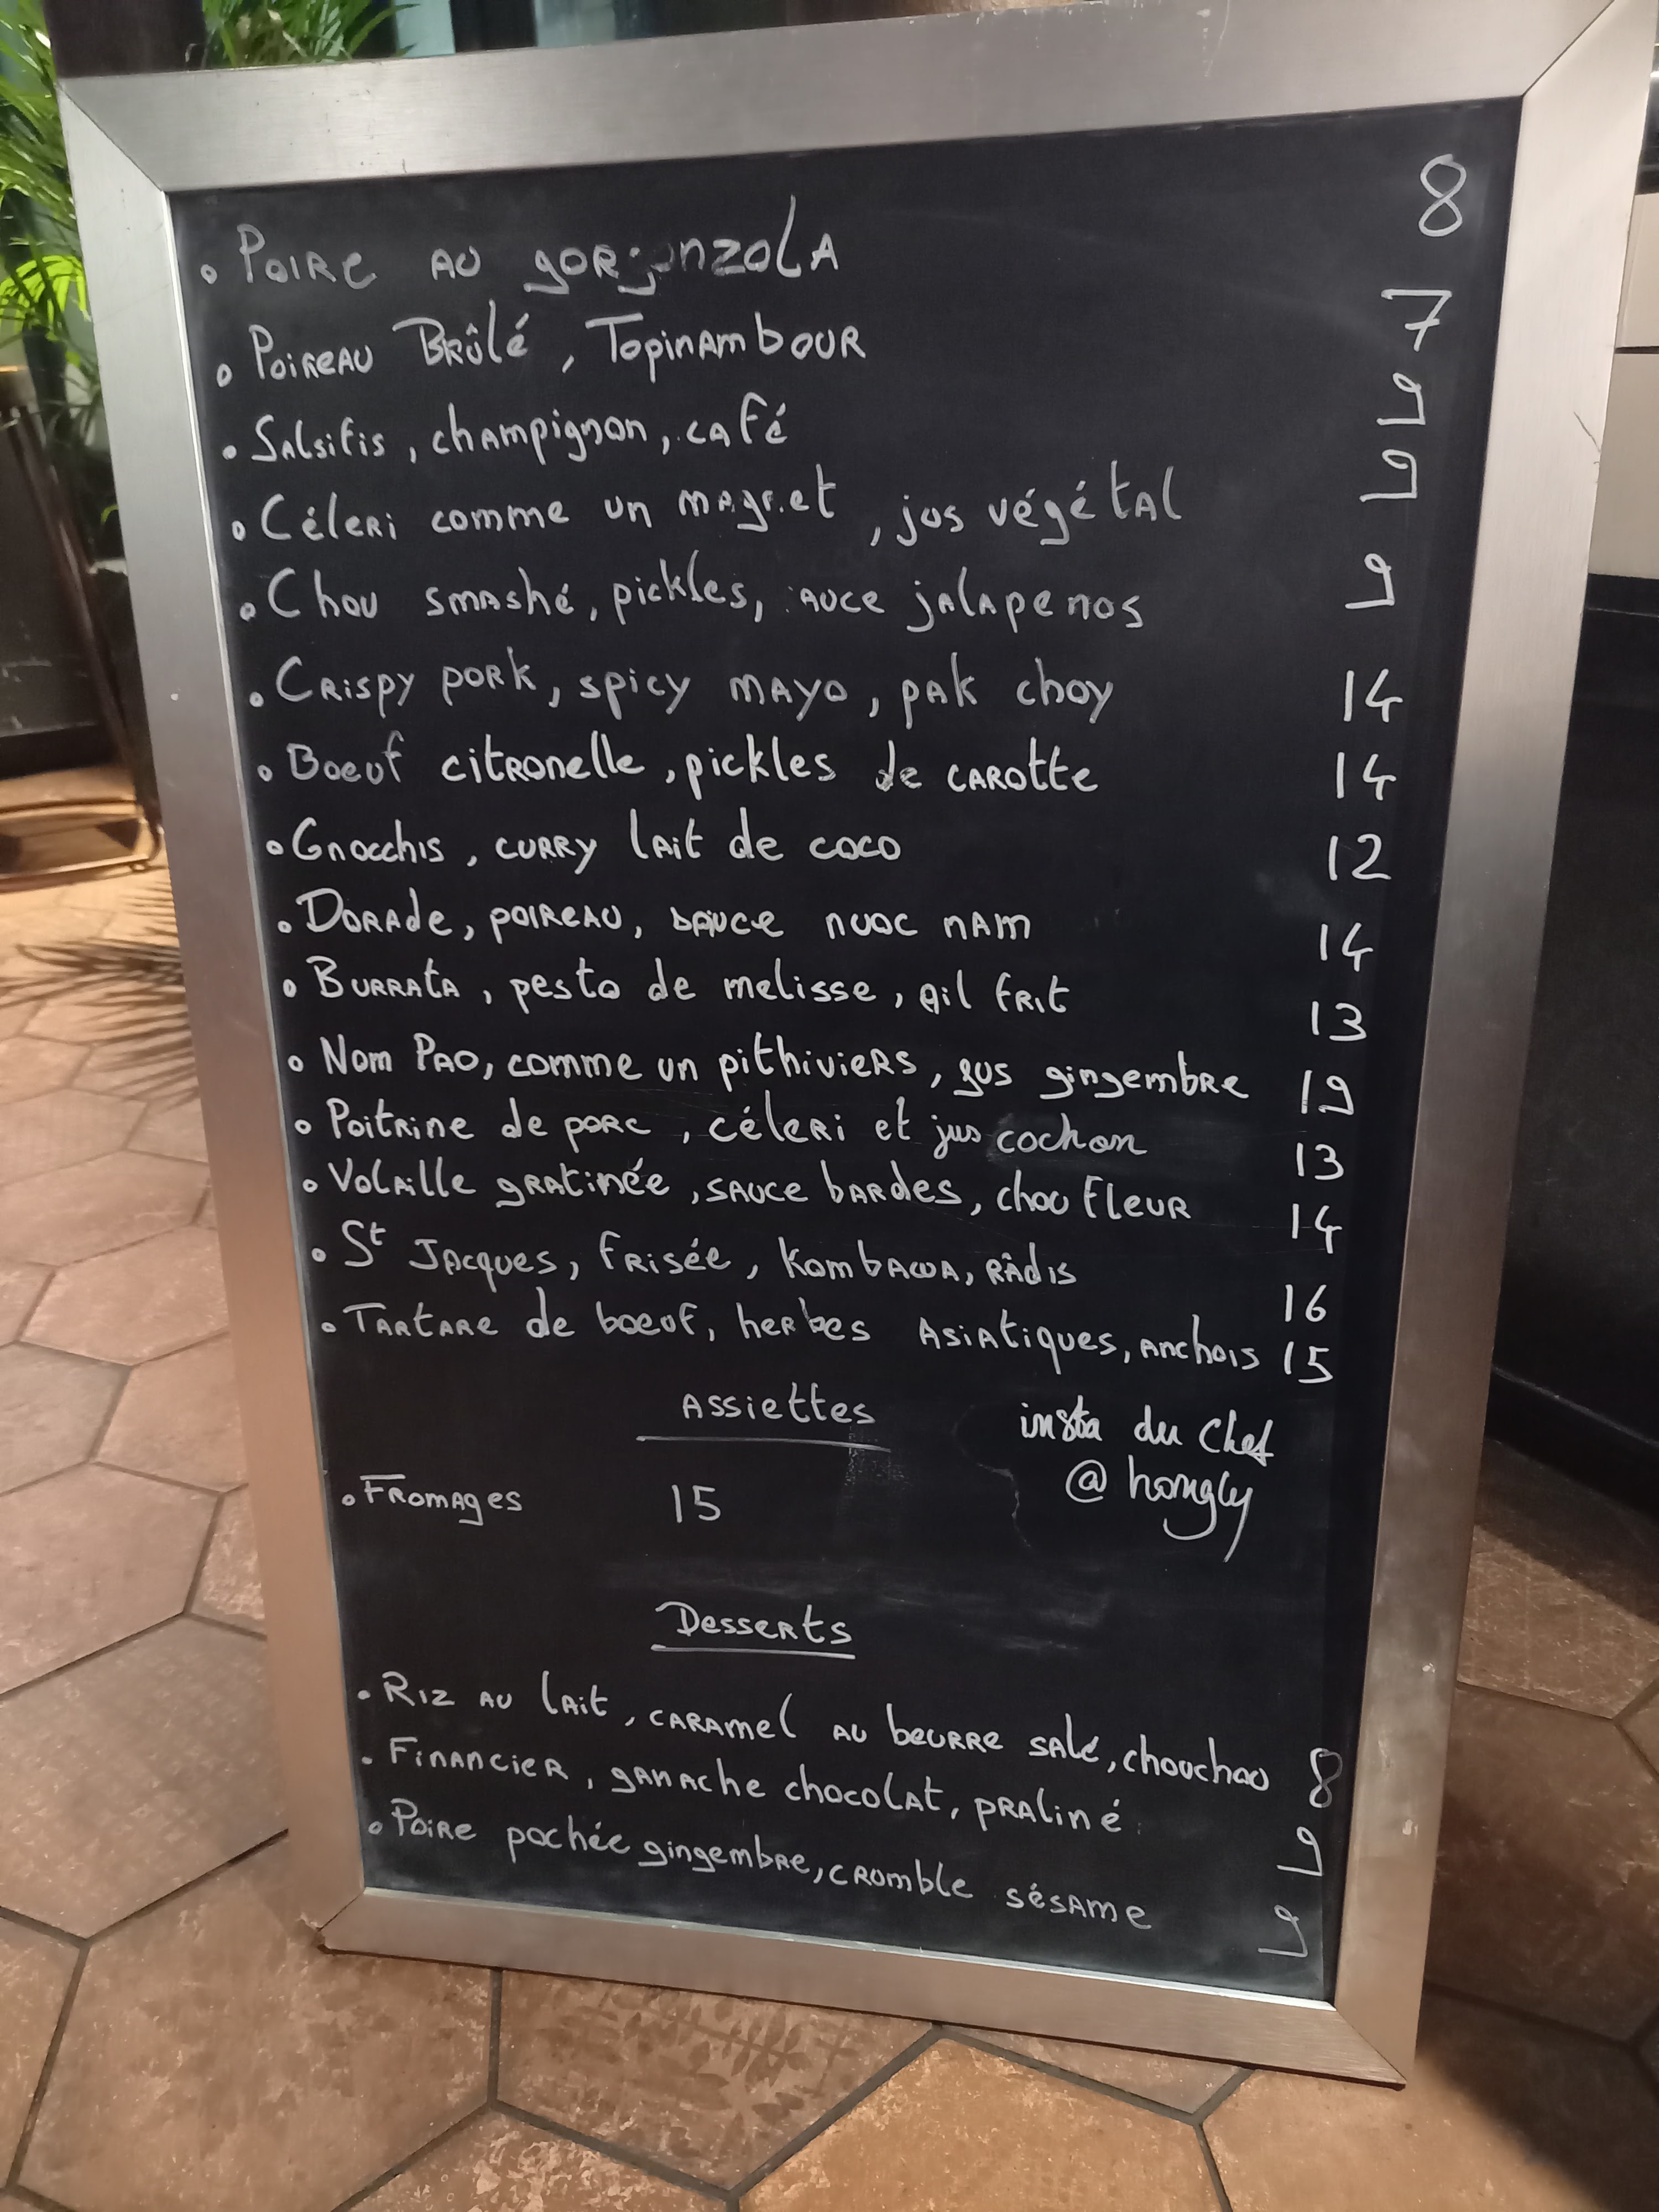 • Poire au gorgonzola 8
• Poireau Brûlé, Topinambour 7
• Salsifis, champignon, café 9
• Céleri comme un magret, jus végétal 9
• Chou smashé, pickles, sauce jalapenos 9
• Crispy pork, spicy mayo, pak choy 14
• Boeuf citronelle, pickles de carotte 14
• Gnocchis, curry lait de coco 12
• Dorade, poireau, sauce nuoc nam 14
• Burrata, pesto de melisse, ail frit 13
• Nom Pao, comme un pithiviers, jus gingembre 19
• Poitrine de porc, céleri et jus cochon 13
• Volaille gratinée, sauce bardes, chou fleur 14
• St Jacques, frisée, Kombawa, râdis 16
• Tartare de boeuf, herbes Asiatiques, anchois 15
Assiettes
insta du Chef
@hongly
• Fromages 15
Desserts
• Riz au lait, caramel au beurre salé, chouchou 8
• Financier, ganache chocolat, praliné 9
• Poire pochée gingembre, cromble sésame 9